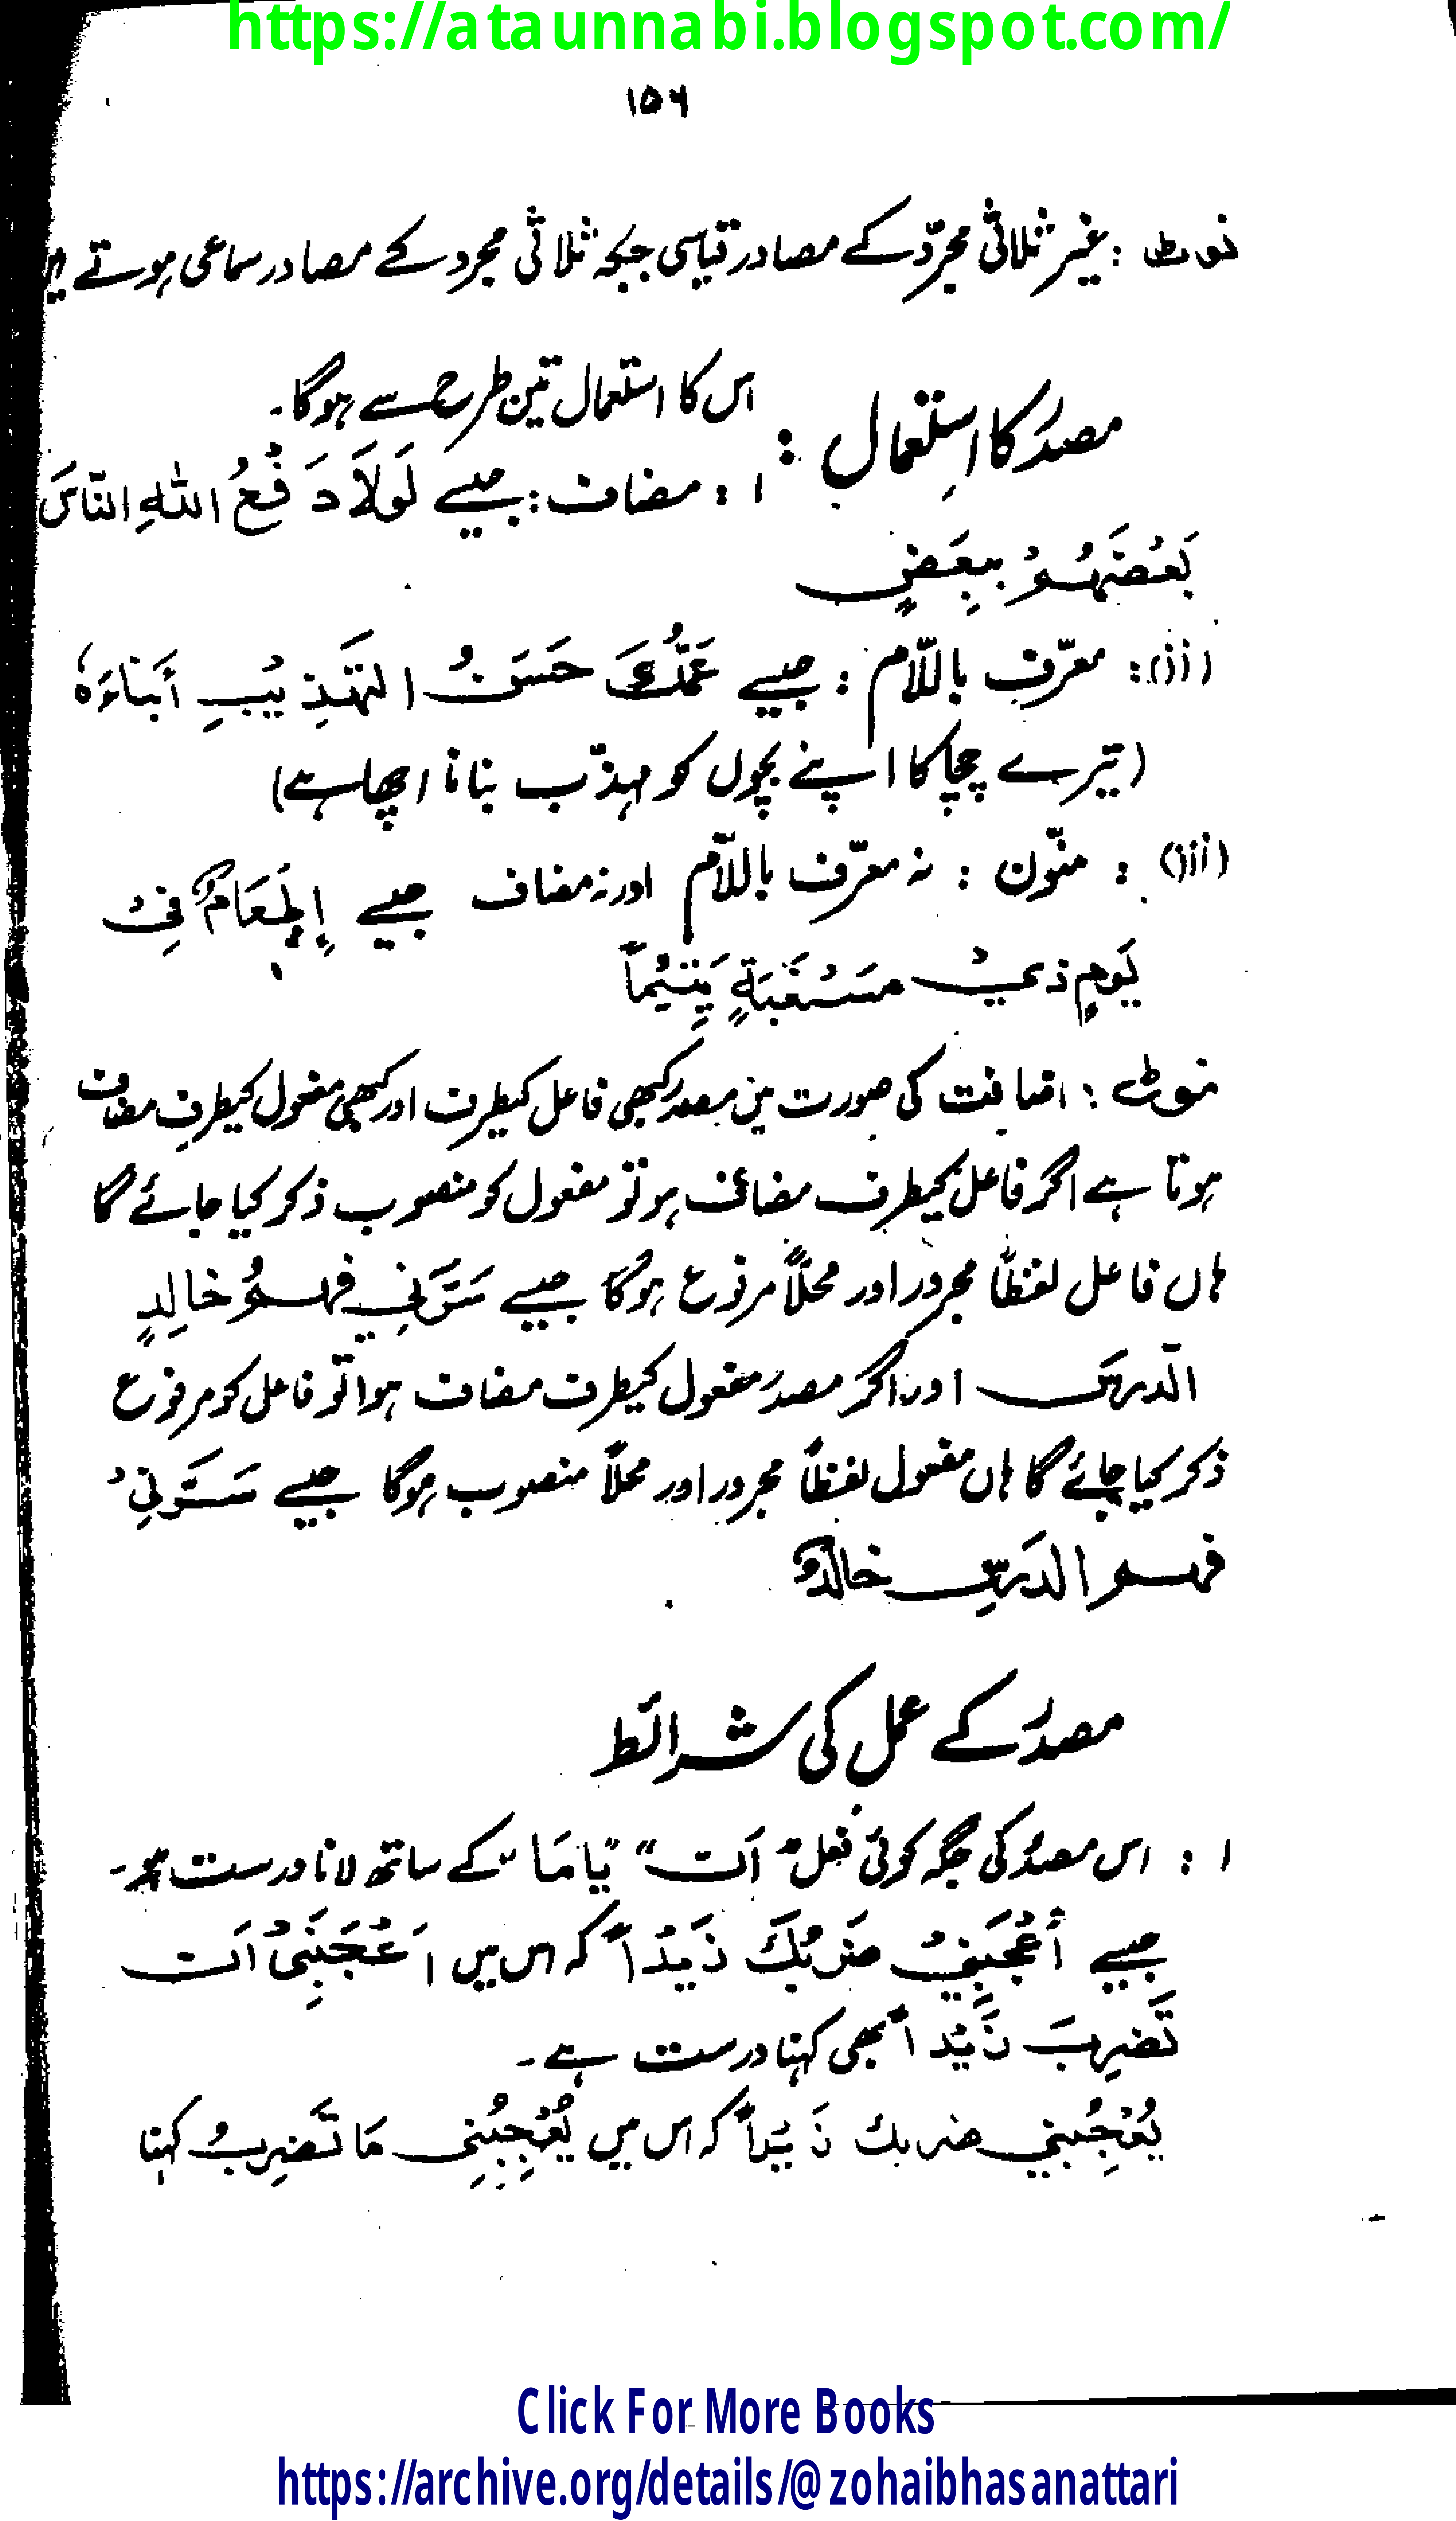 https://ataunnabi.blogspot.com/
۱۵۶
نوٹ : غیر ثلاثی مجرّد کے مصادر قیاسی جبکہ ثلاثی مجرد کے مصادر سماعی ہوتے ہیں
مصدر کا استعمال : اس کا استعمال تین طرح سے ہوگا۔
۱ : مضاف : جیسے لَولَا دَفْعُ اللہِ النّاسَ
بَعْضَهُمْ بِبَعَضٍ
(ii) : معرّف باللّام : جیسے عَمُّكَ حَسَنُ التهَذِيْبِ أبناءَهٗ
(تیرے چچا کا اپنے بچوں کو مہذّب بنانا اچھا ہے)
(iii) : منّون : نہ معرّف باللّام اور نہ مضاف جیسے إِطْعَامٌ فِيْ
يَومٍ ذِيْ مَسْغَبَةٍ يَتِيْماً
نوٹ : اضافت کی صورت میں مصدر کبھی فاعل کیطرف اور کبھی مفعول کیطرف مضاف
ہوتا ہے اگر فاعل کیطرف مضاف ہو تو مفعول کو منصوب ذکر کیا جائے گا
ہاں فاعل لفظاً مجرور اور محلاً مرفوع ہوگا جیسے سَرَّنِي فهمُ خالِدٍ
الدرسَ اور اگر مصدر مفعول کیطرف مضاف ہوا تو فاعل کو مرفوع
ذکر کیا جائے گا ہاں مفعول لفظاً مجرور اور محلاً منصوب ہوگا جیسے سَرَّنِيْ
فهم الدَرسِ خالدٌ
مصدر کے عمل کی شرائط
۱ : اس مصدر کی جگہ کوئی فعل "اَن" یا "مَا" کے ساتھ لانا درست ہو۔
جیسے أعْجَبَنِيْ ضَربُكَ زَيْدًا کہ اس میں اَعْجَبَنِىْ اَن
تَضرِبَ زَيْداً بھی کہنا درست ہے۔
يُعْجِبُنِي ضربك زَيْداً کہ اس میں يُعْجِبُنِى مَا تَضرِبُ کہنا
Click For More Books
https://archive.org/details/@zohaibhasanattari